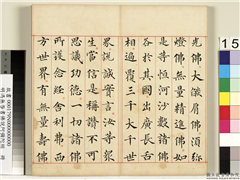 光佛大燄肩佛須彌
燈佛無量精進佛如
是等恒河沙數諸佛
各於其國出廣長舌
相遍覆三千大千世
界說誠實言汝等眾
生當信是稱讚不可
思議功德一切諸佛
所護念經舍利弗西
方世界有無量壽佛
15